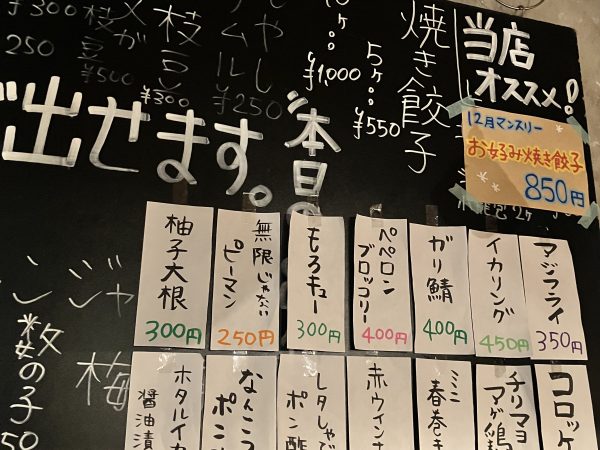 当店
オススメ!
12月マンスリー
お好み焼き餃子
850円
焼き餃子
5ヶ
¥550
10ヶ
¥1,000
¥250
枝豆
¥300
枝豆
¥500
¥300
250
出せます。
本日の
マジフライ
350円
イカリング
450円
ガリ鯖
400円
ペペロン
ブロッコリー
400円
もろキュー
300円
無限じゃない
ピーマン
250円
柚子大根
300円
コロッケ
チリマヨ
マゲ鶏
ミニ
春巻き
赤ウインナ
レタしゃぶ
ポン酢
なんこつ
ポン
ホタルイカ
醤油漬
ジャ
梅
数の子
50